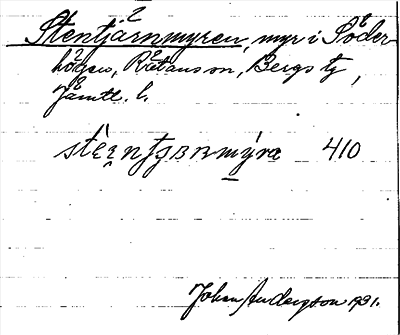 2
Stentjärnmyren, myr i Söder-
högen, Rätans sn, Bergs tg,
Jämtl. l.
410
Johan Andersson 1931.